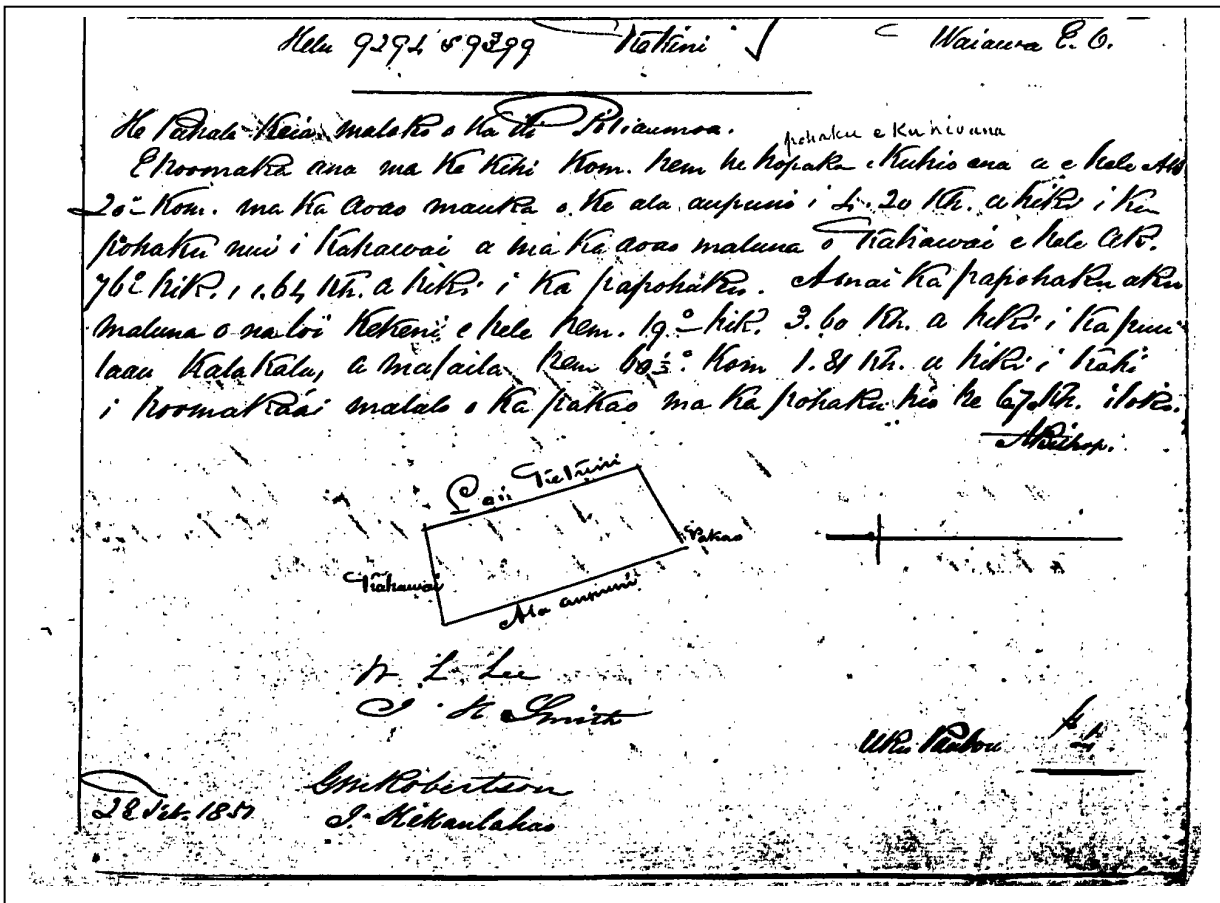 Helu 9294 & 9399 Kekini Waiawa E. O.
He Pahale Keia maloko o Ka ili Poliaumoa.
pohaku e Ku nei
E hoomaka ana ma Ke Kihi Kom. hem a e hele Ak.
20° Kom. ma Ka aoao mauka o Ke ala aupuni i 4.20 Kh. a hiki i Ka
pohaku nui i Kahawai a ma Ka aoao maluna o Kahawai e hele Ak.
76° hik. 1.64 Kh. a hiki i Ka papohaku. Ma Ka papohaku aku
maluna o na loi Kekeni e hele hem. 19° hik. 3.60 Kh. a hiki i Ka puu
laau Kalakalu, a malaila hem 60½° Kom 1.81 Kh. a hiki i Kahi
i hoomakaai malalo o Ka pakao ma Ka pohaku iloko.
A Bishop.
Loi Kekini
Pakao
Kahawai
Ala aupuni
W. L. Lee
J. H. Smith
Uku Pauhou
G M Robertson
28 1851
J. Kekaulahao